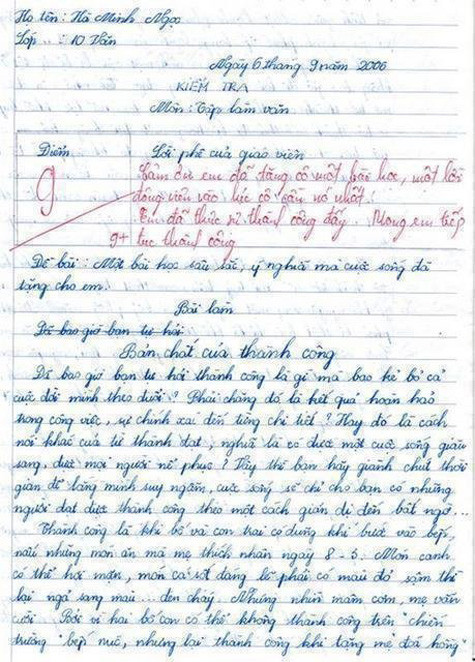 Họ tên : Hà Minh Ngọc
Lớp : 10 Văn
Ngày 6 tháng 9 năm 2006
KIỂM TRA
Môn : Tập làm văn
Điểm
Lời phê của giáo viên
9
Cảm ơn em đã tặng cô một bài học, một lời
động viên vào lúc cô cần nó nhất!
Em đã thực sự thành công đấy. Mong em tiếp
9+ tục thành công
Đề bài : Một bài học sâu sắc, ý nghĩa mà cuộc sống đã
tặng cho em.
Bài làm
Đã bao giờ bạn tự hỏi
Bản chất của thành công
Đã bao giờ bạn tự hỏi thành công là gì mà bao kẻ bỏ cả
cuộc đời mình theo đuổi? Phải chăng đó là kết quả hoàn hảo
trong công việc, sự chính xác đến từng chi tiết? Hay đó là cách
nói khác của từ thành đạt, nghĩa là có được một cuộc sống giàu
sang, được mọi người nể phục? Vậy thì bạn hãy giành chút thời
gian để lặng mình suy ngẫm, cuộc sống sẽ chỉ cho bạn có những
người đạt được thành công theo một cách giản dị đến bất ngờ...
Thành công là khi bố và con trai có dũng khí bước vào bếp,
nấu những món ăn mà mẹ thích nhân ngày 8-3. Món canh
có thể hơi mặn, món cá sốt đáng lẽ phải có màu đỏ sậm thì
lại ngả sang màu ... đen cháy. Nhưng nhìn mâm cơm, mẹ vẫn
cười. Bởi vì hai bố con có thể không thành công trên "chiến
trường" bếp núc, nhưng lại thành công khi tặng mẹ "đoá hồng"